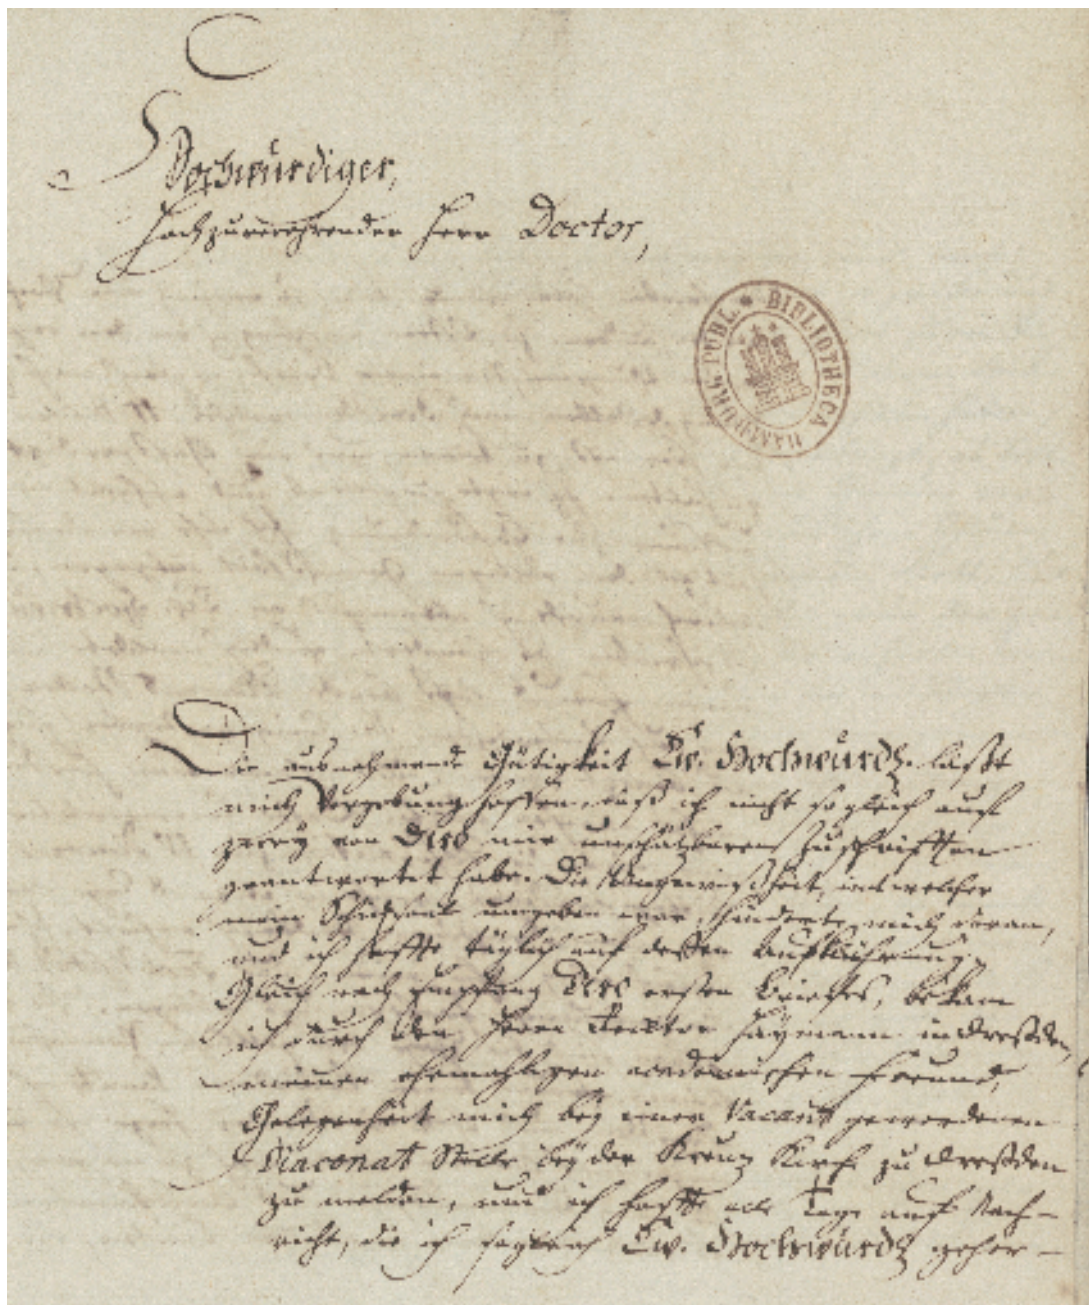 Hochwürdiger,
Hochzuverehrender Herr Doctor,
BIBLIOTHECA HAMBURG. PUBL.
Die ausnehmende Gütigkeit Ew. Hochwürd. läßt
mich Vergebung hoffen, daß ich nicht sogleich auf
zwey von Dero mir unschätzbaren Zuschrifften
geantwortet habe. Die Ungewißheit, in welcher
mein Schicksal umgeben war, hinderte mich daran,
und ich hoffte täglich auf deßen Aufklährung.
Gleich nach Empfang Dero ersten Briefes, bekam
ich durch den Herrn Rector Haymann in Dreßden,
meinen ehemahligen academischen Freund,
Gelegenheit mich bey einer vacant gewordenen
Diaconat Stelle bey der Kreuz Kirche zu Dreßden
zu melden, und ich hoffte alle Tage auf Nach-
richt, die ich sogleich Ew. Hochwürd. gehor-